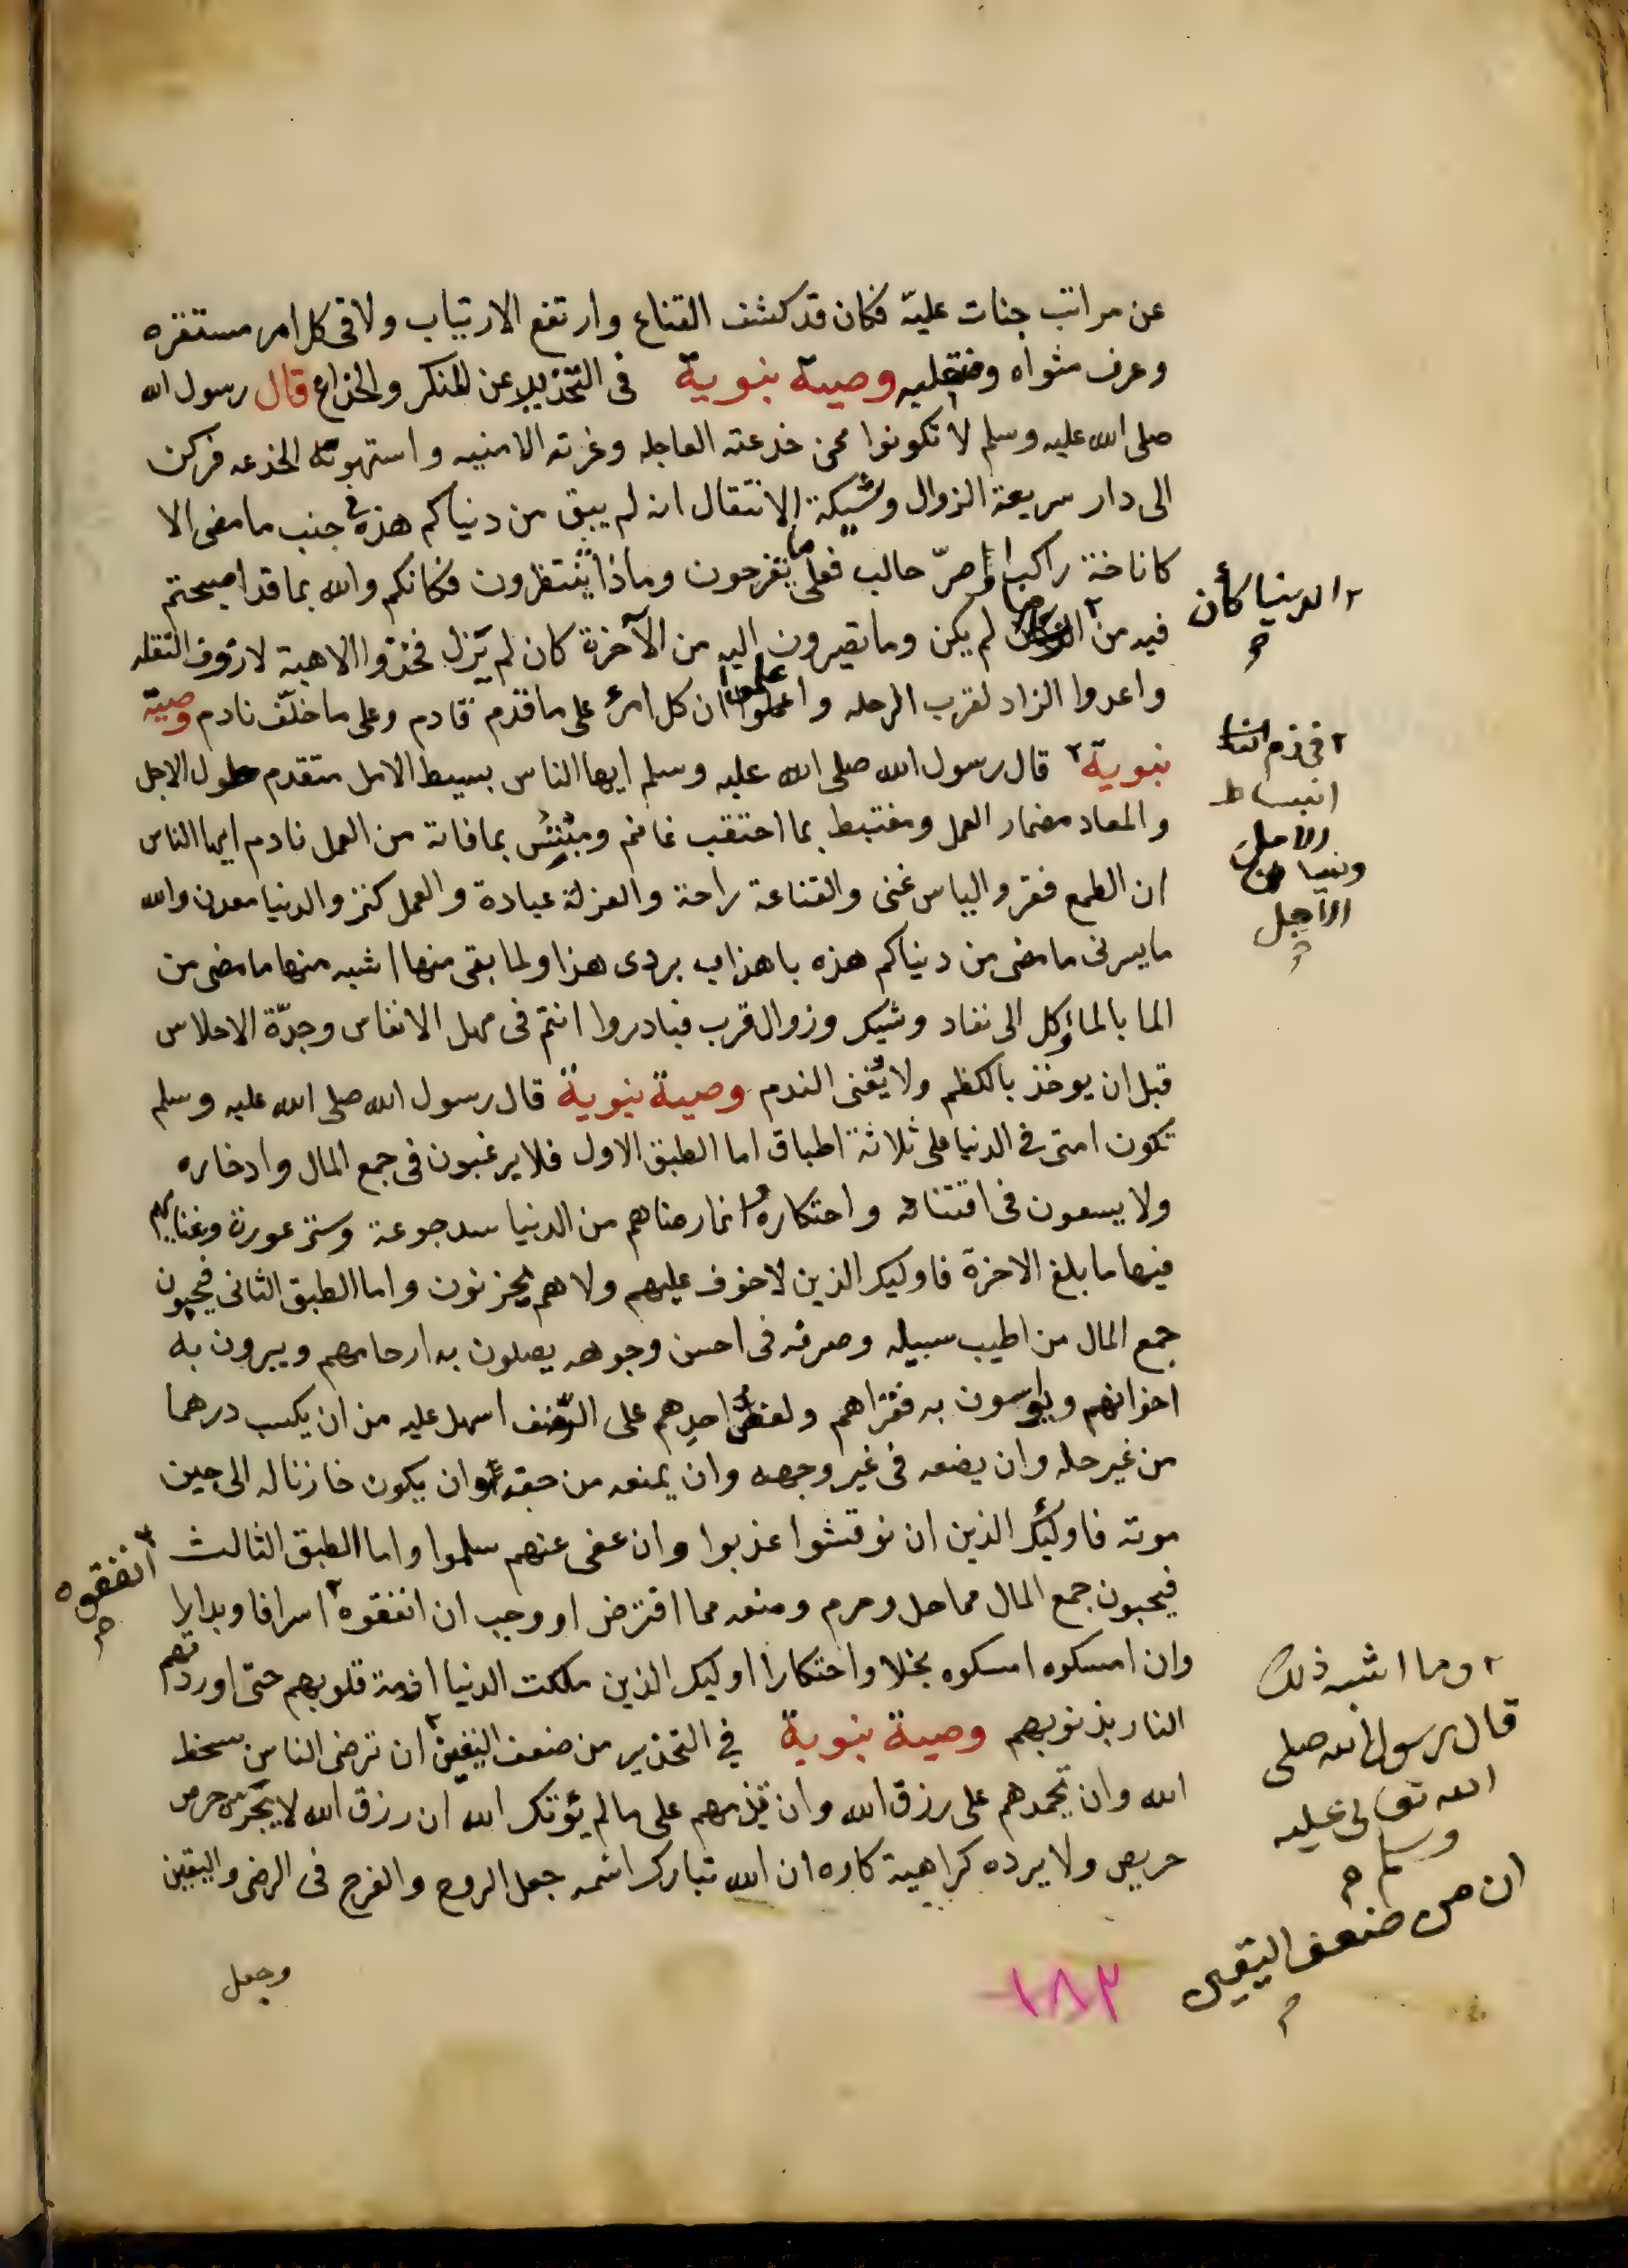 عن مراتب جنات عليّه فكان قد كشف القناع وارتفع الارتياب ولاقى كل امر مستقره
وعرف مثواه ومنقلبه وصية نبوية فى التحذير عن المنكر والخداع قال رسول الله
صلى الله عليه وسلم لا تكونوا ممن خدعته العاجله وغرته الامنيه واستهوته الخدعه فركن
الى دار سريعة الزوال وشيكة الانتقال انه لم يبق من دنياكم هذه فى جنب ما مضى الا
كاناخة راكب او صرّ حالب فعلى ما تفرحون وماذا تنتظرون فكانكم والله بما قد اصبحتم
فيه من ٢ لم يكن وما تصيرون اليه من الآخرة كان لم يزل فخذوا الاهبة لازوف النقله
واعدوا الزاد لقرب الرحله واعلموا ان كل امرئ على ما قدم قادم وعلى ما خلّف نادم وصيّة
نبوية ٢ قال رسول الله صلى الله عليه وسلم ايها الناس بسيط الامل متقدم حلول الاجل
والمعاد مضمار العمل ومغتبط بما احتقب غانم ومبتئس بما فاته من العمل نادم ايها الناس
ان الطمع فقر والياس غنى والقناعة راحة والعزلة عبادة والعمل كنز والدنيا معدن والله
ما يسرنى ما مضى من دنياكم هذه باهداب بردى هذا ولما بقى منها اشبه منها ما مضى من
الما بالماء وكل الى نفاد وشيك وزوال قرب فبادروا انتم فى مهل الانفاس وجدّة الاحلاس
قبل ان يوخذ بالكظم ولا يغنى الندم وصية نبوية قال رسول الله صلى الله عليه وسلم
تكون امتى فى الدنيا على ثلاثة اطباق اما الطبق الاول فلا يرغبون فى جمع المال وادخاره
ولا يسعون فى اقتنائه واحتكاره انما رضاهم من الدنيا سد جوعة وستر عورة وغناهم
فيها ما بلغ الاخرة فاوليك الذين لا خوف عليهم ولا هم يحزنون واما الطبق الثانى فيحبون
جمع المال من اطيب سبيله وصرفه فى احسن وجوهه يصلون به ارحامهم ويبرون به
اخوانهم ويواسون به فقراهم ولعضّ احدهم على الرضف اسهل عليه من ان يكسب درهما
من غير حله وان يضعه فى غير وجهه وان يمنعه من حقه وان يكون خازنا له الى حين
موته فاوليك الذين ان نوقشوا عذبوا وان عفى عنهم سلموا واما الطبق الثالث
فيحبون جمع المال مما حل وحرم ومنعه مما افترض او وجب ان انفقوه ٢ اسرافا وبدارا
وان امسكوه امسكوه بخلا واحتكارا اوليك الذين ملكت الدنيا ازمة قلوبهم حتى اوردتهم
النار بذنوبهم وصية نبوية في التحذير من ضعف اليقين ٢ ان ترضى الناس بسخط
الله وان تحمدهم على رزق الله وان تذمهم على ما لم يؤتك الله ان رزق الله لا يجره حرص
حريص ولا يرده كراهية كاره ان الله تبارك اسمه جعل الروح والفرج فى الرضى واليقين
وجعل
٢ الدنيا كأن
٢ فى ذم
انبساط
الامل
ونسيان
الآجل
٢ أنفقوه
٢ وما اشبه ذلك
قال رسول الله صلى
الله تعالى عليه
وسلم
ان من ضعف اليقين
١٨٢